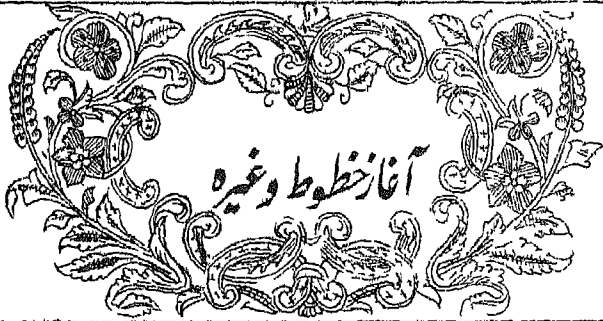 آغاز خطوط وغیره